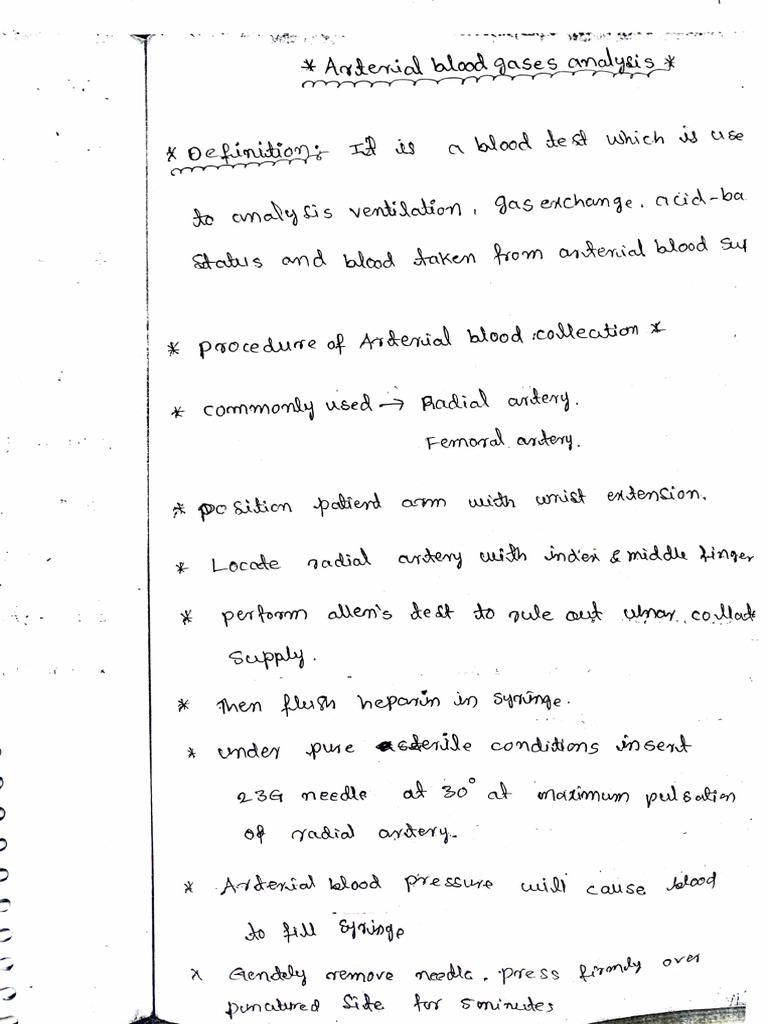 * Arterial blood gases analysis *
* Definition:- It is a blood test which is use
to analysis ventilation, gas exchange, acid-ba
status and blood taken from arterial blood sup
* procedure of Arterial blood collection *
* commonly used → Radial artery.
Femoral artery.
* position patient arm with wrist extension.
* Locate radial artery with index & middle finger
* perform allen's test to rule out ulnar collate
supply.
* Then flush heparin in syringe.
* under pure asterile conditions insert
23G needle at 30° at maximum pulsation
of radial artery.
* Arterial blood pressure will cause blood
to fill syringe
* Gendely remove needle. press firmly over
punctured side for 5 minutes